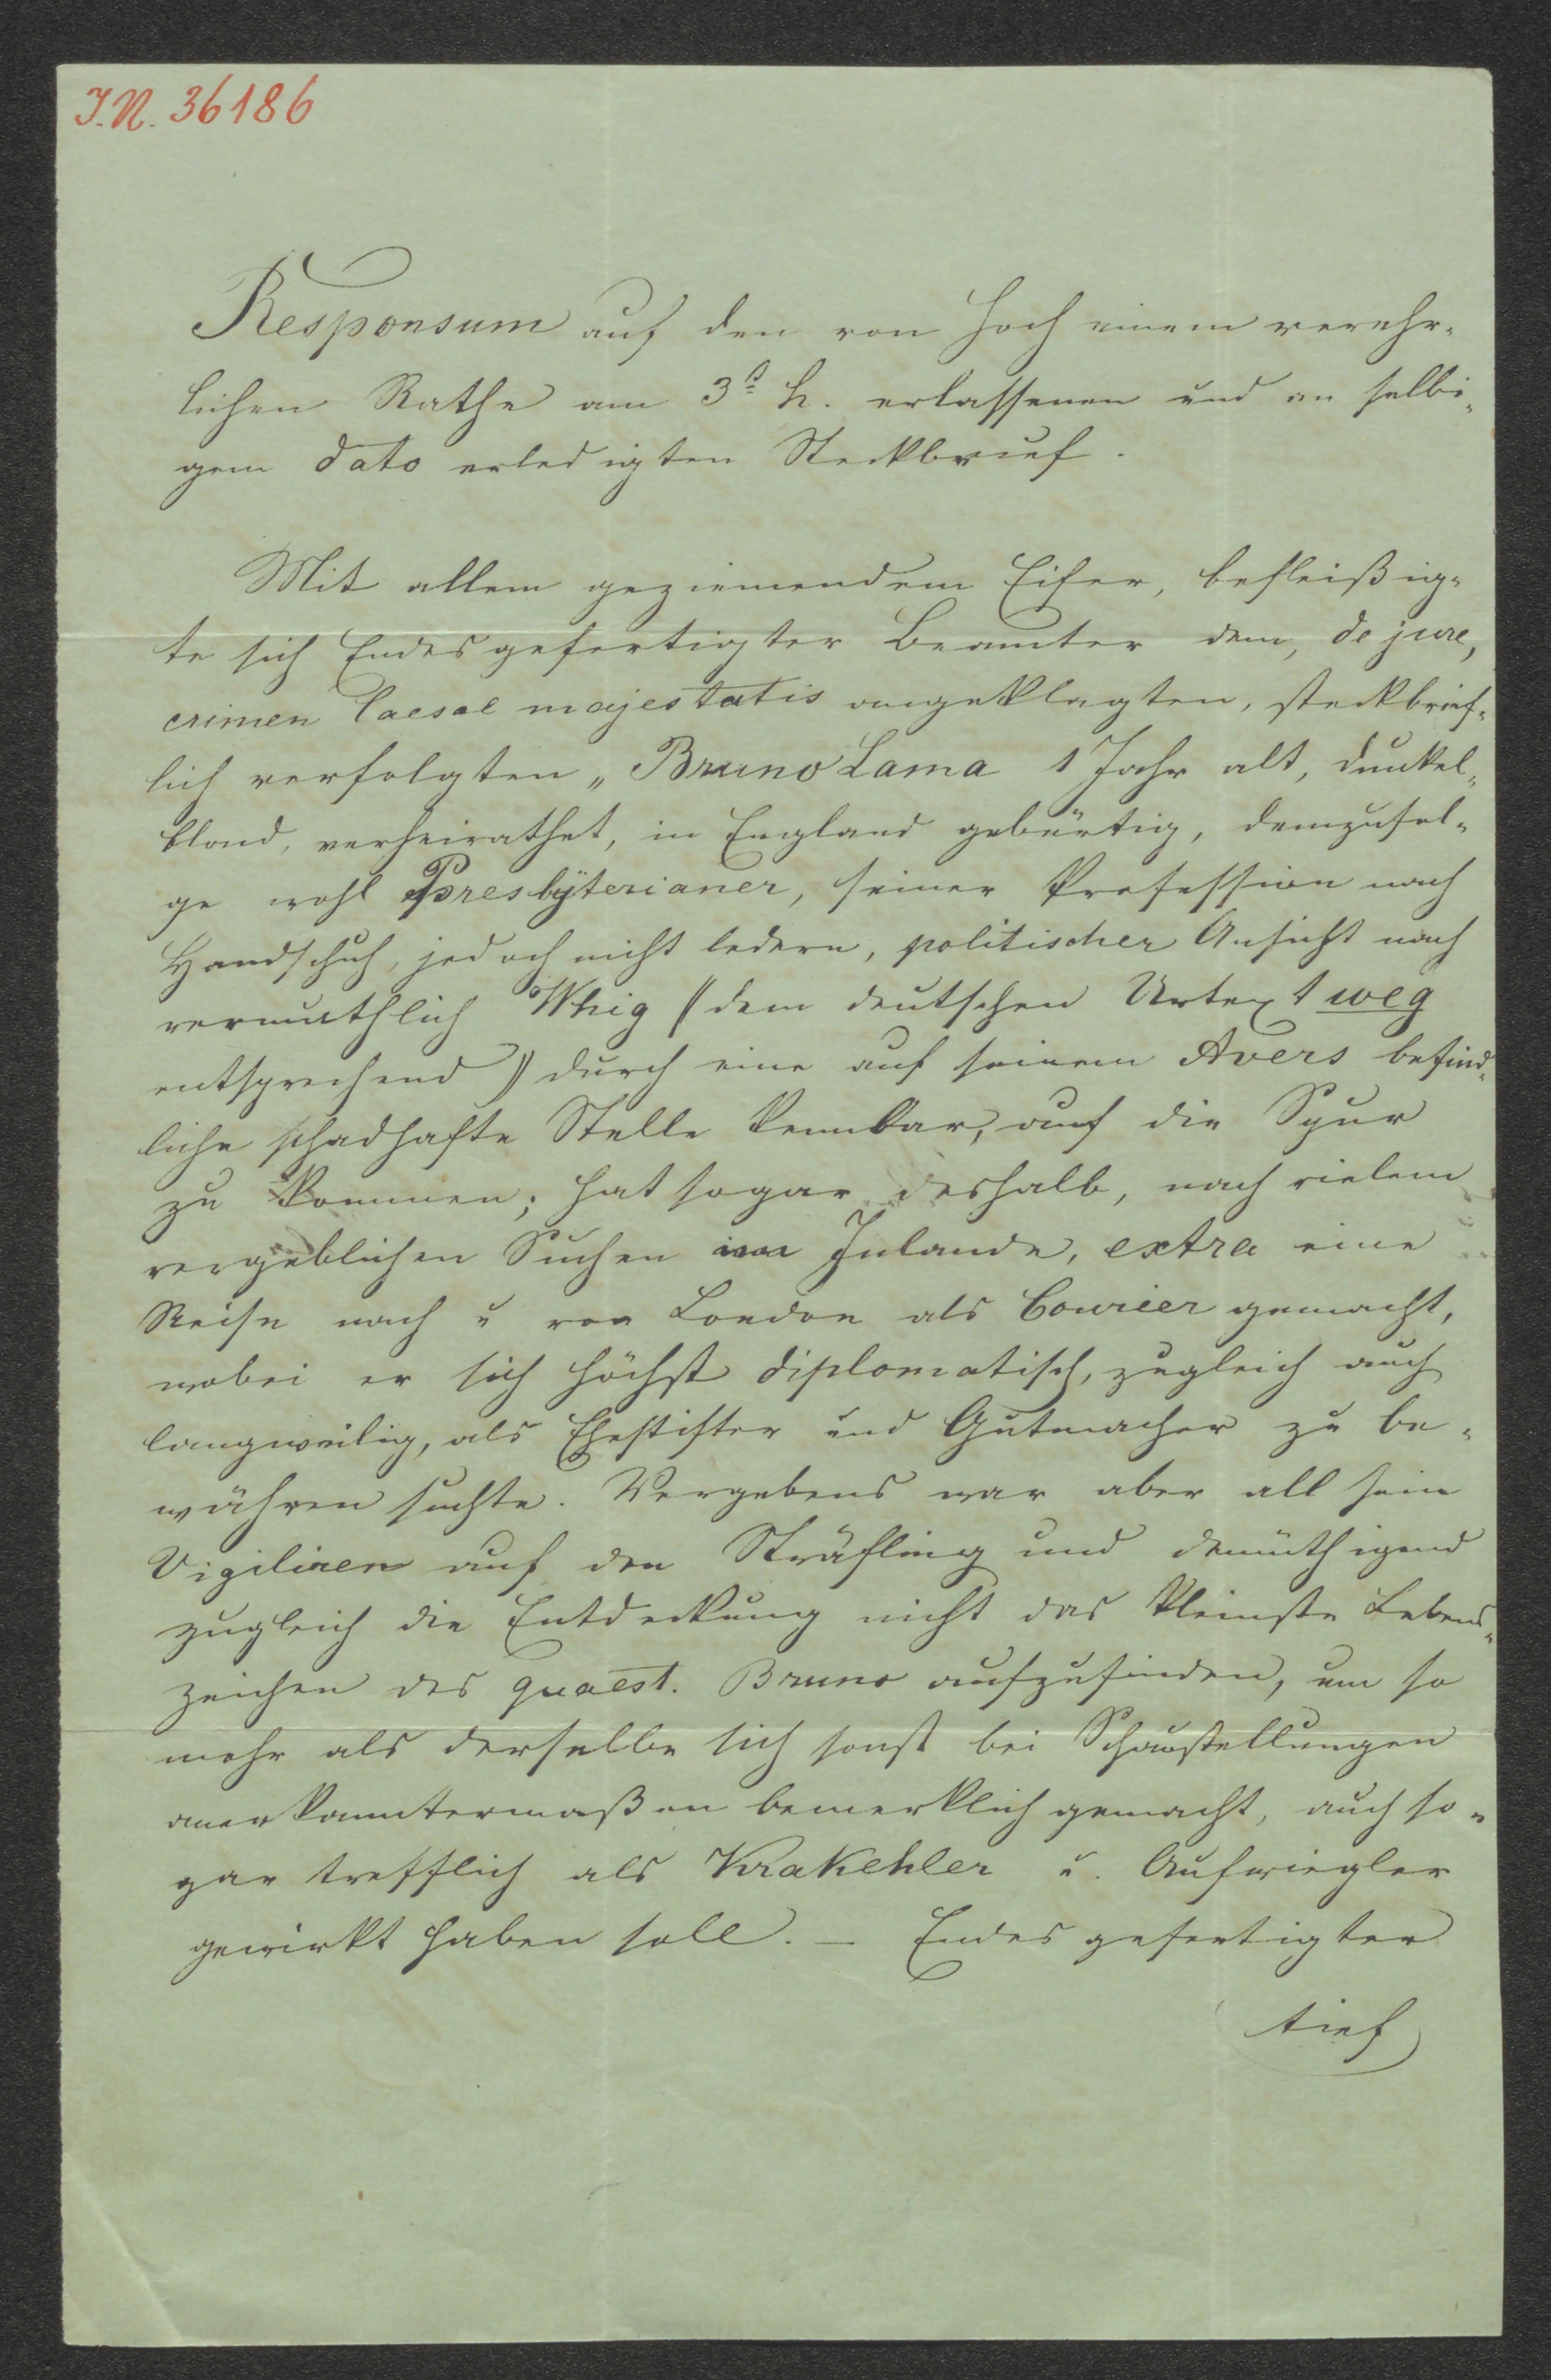 I.N. 36186
Responsum auf den von Hoch einem verehr-
lichen Rathe am 3t h. erlassenen und an selbi-
gem dato erledigten Steckbrief.
Mit allem geziemendem Eifer, befleißig-
te sich Endesgefertigter Beamter dem, de jure,
crimen laesae majestatis angeklagten, steckbrief-
lich verfolgten „Bruno Lama 1 Jahr alt, dunkel-
blond, verheirathet, in England gebürtig, demzufol-
ge wohl Presbÿterianer, seiner Profession nach
Handschuh, jedoch nicht ledern, politischer Ansicht nach
vermuthlich Whig (dem deutschen Urtext weg
entsprechend) durch eine auf seinem Avers befind-
liche schadhafte Stelle kennbar, auf die Spur
zu kommen; hat sogar deshalb, nach vielem
vergeblichen Suchen im Inlande, extra eine
Reise nach u von London als Courier gemacht,
wobei er sich höchst diplomatisch, zugleich auch
langweilig, als Ehestifter und Gutmacher zu be-
währen suchte. Vergebens war aber all sein
Vigiliren auf den Sträfling und demüthigend
zugleich die Entdeckung nicht das kleinste Lebens-
zeichen des quaest. Bruno aufzufinden, um so
mehr als derselbe sich sonst bei Schaustellungen
anerkanntermaßen bemerklich gemacht, auch so-
gar trefflich als Krakehler u. Aufwiegler
gewirkt haben soll. — Endesgefertigter
tief